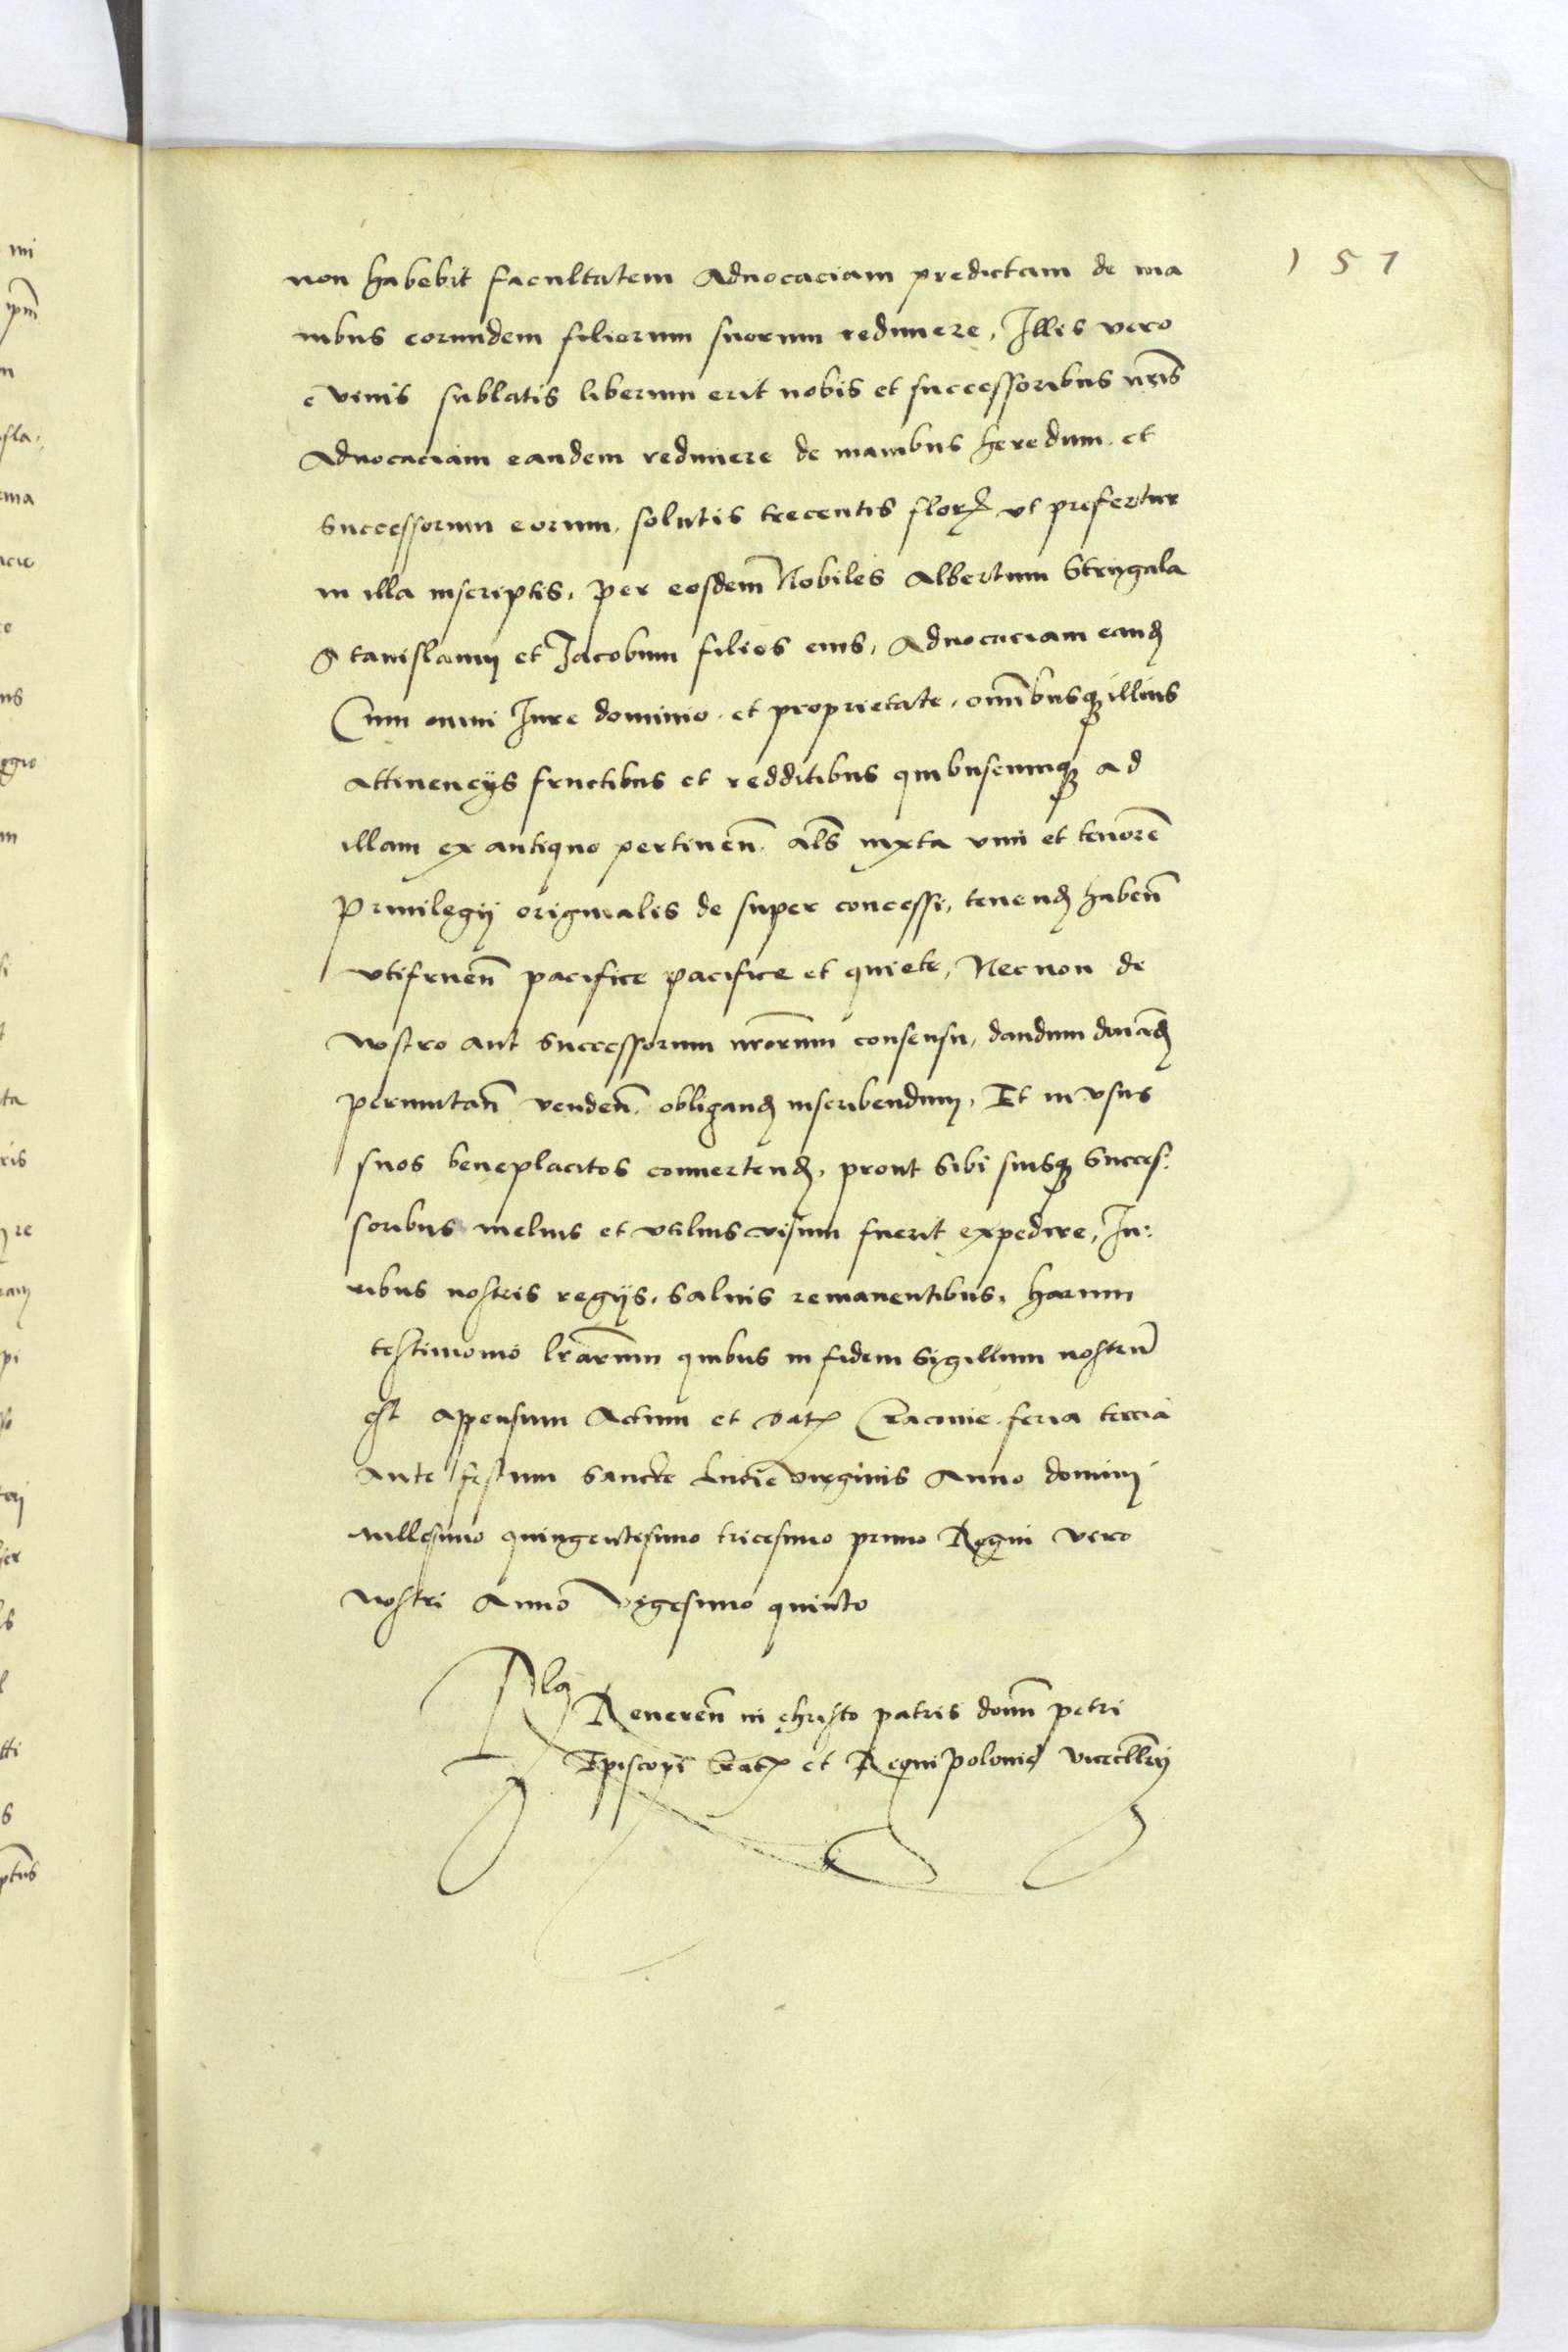 151
non habebit facultatem Aduocaciam predictam de ma
nibus eorundem filiorum suorum redimere, Illis vero
e viuis sublatis liberum erit nobis et successoribus nr̄is
Aduocaciam eandem redimere de manibus heredum et
successorum eorum, solutis trecentis florꝭ vt prefertur
in illa inscriptis, per eosdem̄ Nobiles Albertum Strzygala
Stanislaum et Jacobum filios eius, Aduocaciam eandꝭ
Cum omni Iure dominio et proprietate, omībusqꝫ illius
attinencijs fructibus et redditibus quibuscunqꝫ ad
illam ex antiquo pertinen̄. als̄ iuxta vim et tenorē
Priuilegij originalis de super concessi, tenendꝭ haben̄
vtifruen̄ pacifice pacifice et quiete, Necnon de
nostro aut successorum nr̄orum consensu, dandum donandꝭ
permutan̄ venden̄. obligandꝭ inscribendum, Et in vsus
suos beneplacitos conuertendꝭ, prout sibi suisqꝫ succes:
soribus melius et vtilius visum fuerit expedire, Iu:
ribus nostris regijs, saluis remanentibus, harum
testimonio lr̄arum quibus in fidem sigillum nostrū
est appensum Actum et datꝭ Cracouie feria tercia
ante festum sancte Lucie virginis Anno dominj
millesimo quingentesimo tricesimo primo Regni vero
nostri Anno vigesimo quinto
Rlō
Reueren̄ in christo patris domī petri
Episcopi Cracꝭ et Regni polonie vicecllr̄ij